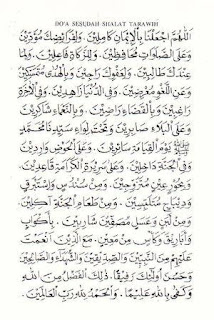 DO'A SESUDAH SHALAT TARAWIH
اَللّٰهُمَّ اجْعَلْنَا بِالْاِيْمَانِ كَامِلِيْنَ. وَلِفَرَائِضِكَ مُؤَدِّيْنَ.
وَعَلَى الصَّلَوَاتِ مُحَافِظِيْنَ. وَلِلزَّكَاةِ فَاعِلِيْنَ. وَلِمَا
عِنْدَكَ طَالِبِيْنَ. وَلِعَفْوِكَ رَاجِيْنَ. وَبِالْهُدَى مُتَمَسِّكِيْنَ
وَعَنِ اللَّغْوِ مُعْرِضِيْنَ. وَفِى الدُّنْيَا زَاهِدِيْنَ. وَفِى الْاٰخِرَةِ
رَاغِبِيْنَ. وَبِالْقَضَاءِ رَاضِيْنَ. وَبِالنَّعْمَاءِ شَاكِرِيْنَ.
وَعَلَى الْبَلَاءِ صَابِرِيْنَ. وَتَحْتَ لِوَاءِ سَيِّدِنَا مُحَمَّدٍ
يَوْمَ الْقِيَامَةِ سَائِرِيْنَ. وَعَلَى الْحَوْضِ وَارِدِيْنَ.
وَفِى الْجَنَّةِ دَاخِلِيْنَ. وَعَلَى سَرِيْرَةِ الْكَرَامَةِ قَاعِدِيْنَ.
وَبِحُوْرٍ عِيْنٍ مُتَزَوِّجِيْنَ. وَمِنْ سُنْدُسٍ وَاِسْتَبْرَقٍ
وَدِيْبَاجٍ مُتَلَبِّسِيْنَ. وَمِنْ طَعَامِ الْجَنَّةِ اٰكِلِيْنَ.
وَمِنْ لَبَنٍ وَعَسَلٍ مُصَفَّيْنِ شَارِبِيْنَ. بِاَكْوَابٍ
وَاَبَارِيْقَ وَكَأْسٍ مِنْ مَعِيْنٍ. مَعَ الَّذِيْنَ اَنْعَمْتَ
عَلَيْهِمْ مِنَ النَّبِيِّيْنَ وَالصِّدِّيْقِيْنَ وَالشُّهَدَاءِ وَالصَّالِحِيْنَ
وَحَسُنَ اُولٰئِكَ رَفِيْقًا. ذٰلِكَ الْفَضْلُ مِنَ اللهِ
وَكَفَى بِاللهِ عَلِيْمًا. وَالْحَمْدُ لِلّٰهِ رَبِّ الْعَالَمِيْنَ.